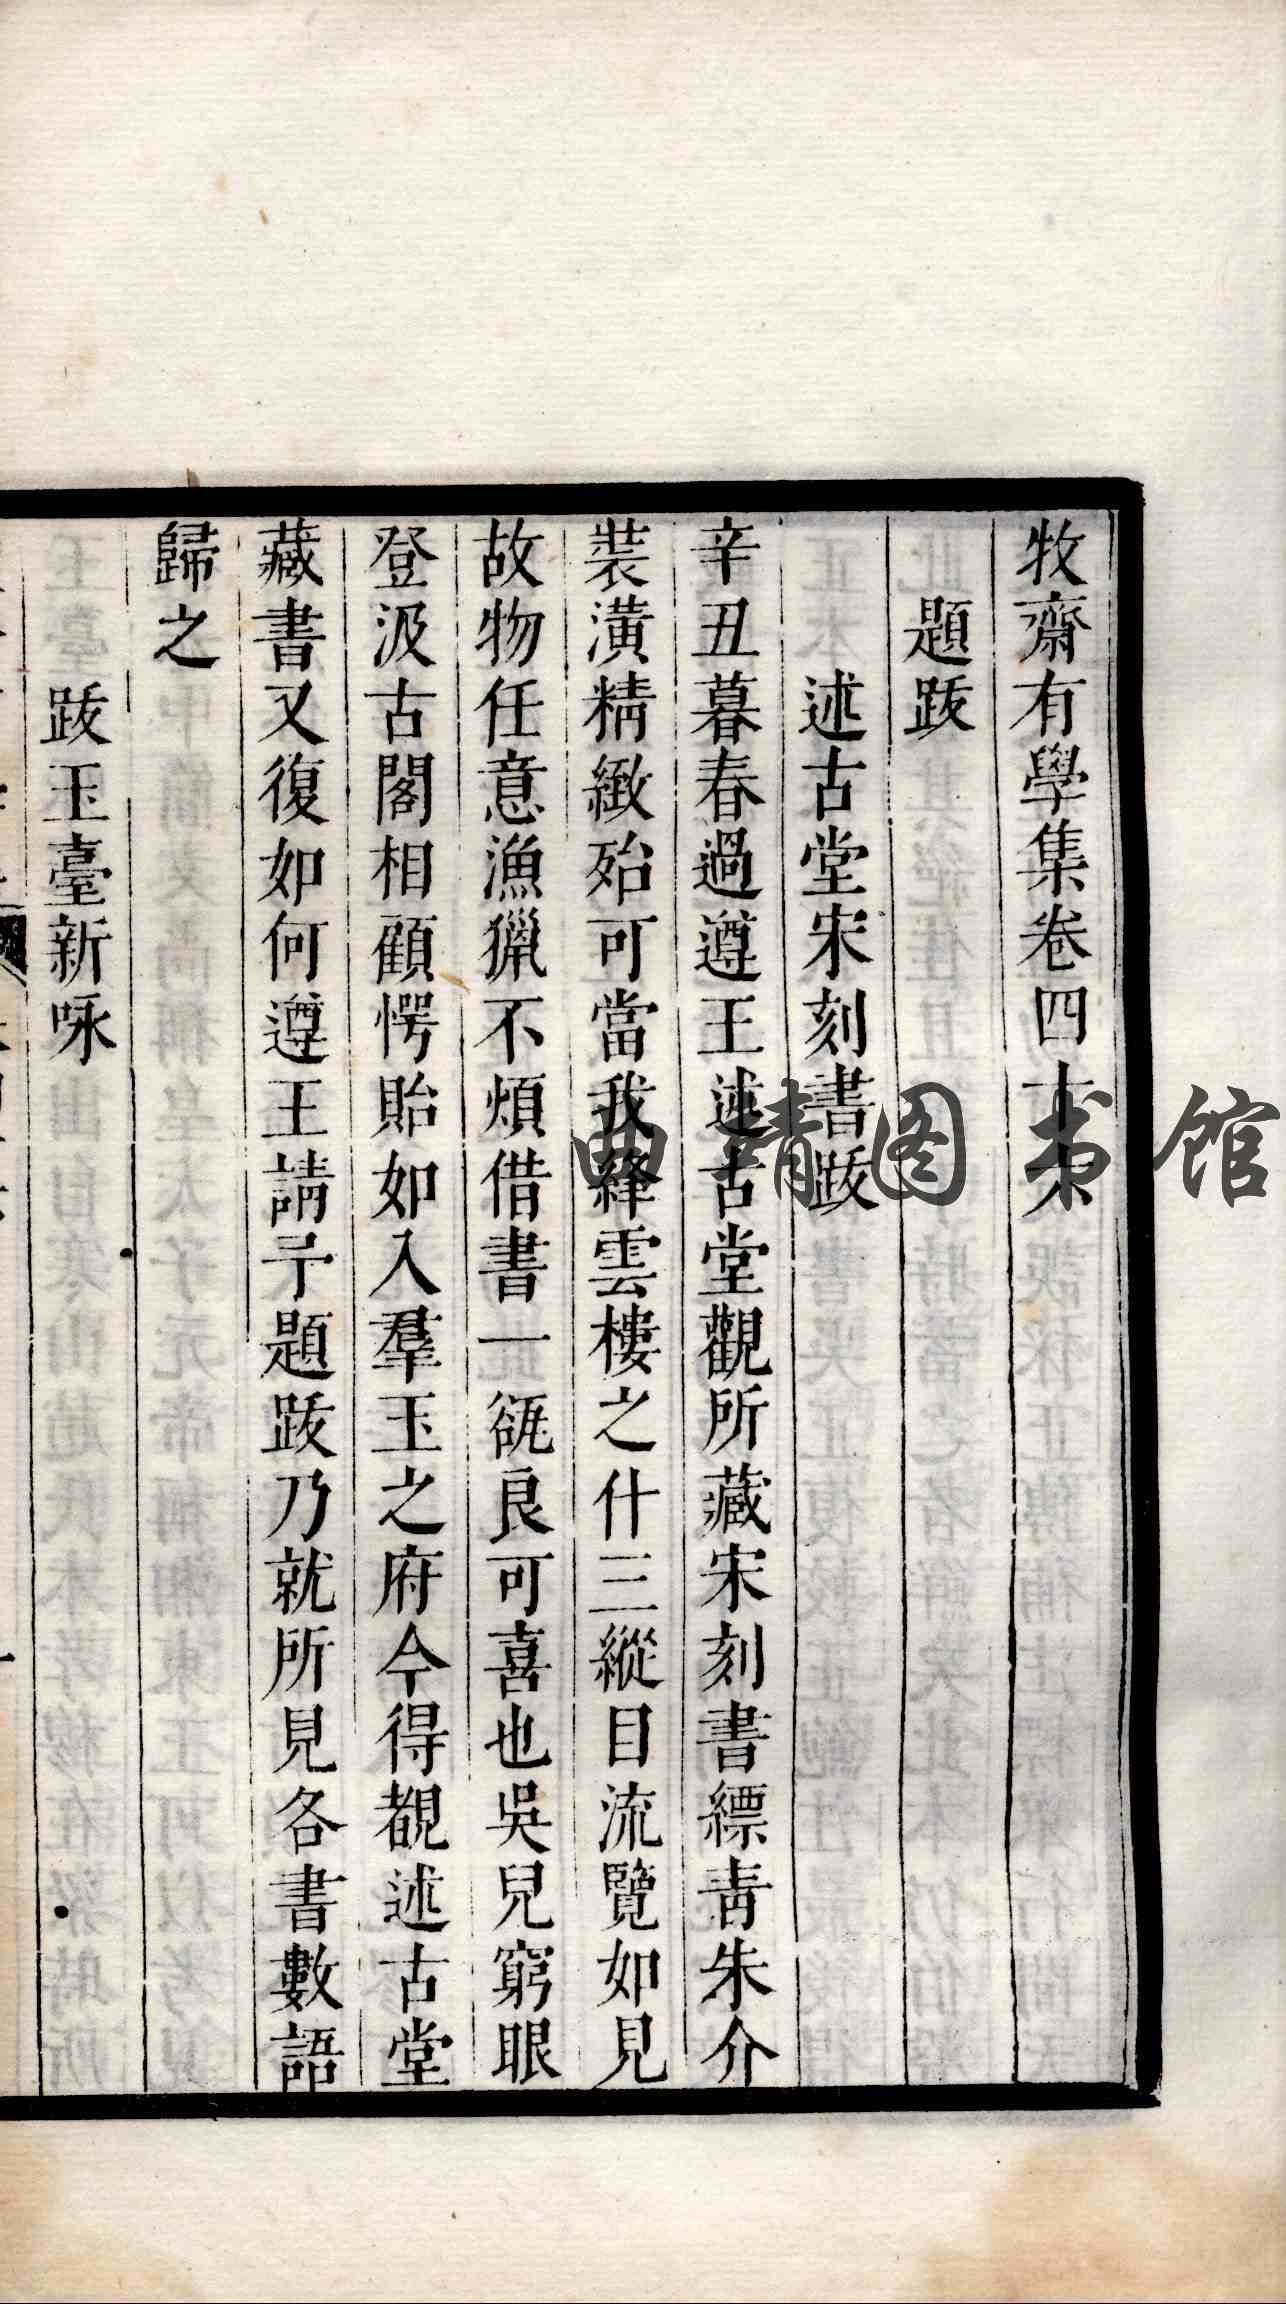 牧齋有學集卷四十六
題跋
述古堂宋刻書跋
辛丑暮春過遵王述古堂觀所藏宋刻書縹青朱介
裝潢精緻殆可當我絳雲樓之什三縱目流覽如見
故物任意漁獵不煩借書一瓻良可喜也吳兒窮眼
登汲古閣相顧愕貽如入羣玉之府今得覩述古堂
藏書又復如何遵王請予題跋乃就所見各書數語
歸之
跋玉臺新咏
曲靖图书馆